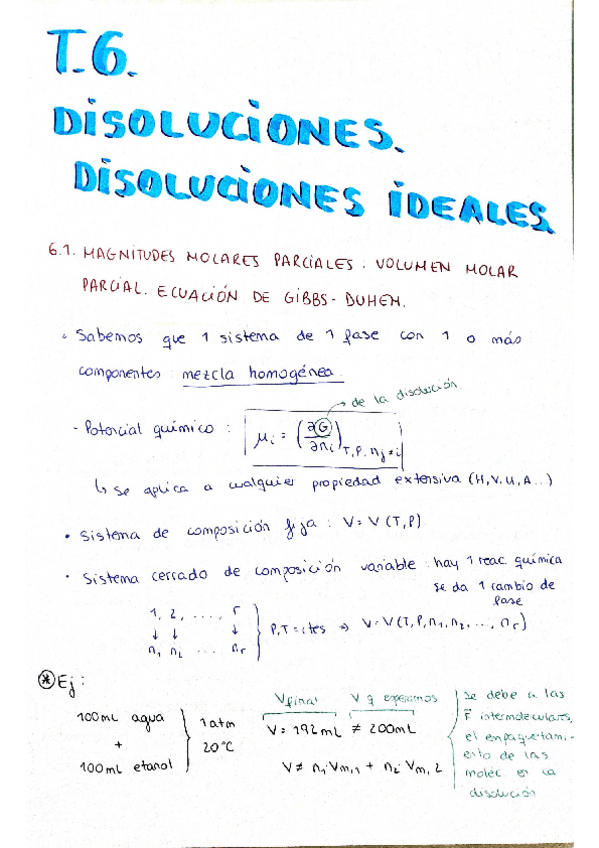 T.6.
DISOLUCIONES.
DISOLUCIONES IDEALES
6.1. MAGNITUDES MOLARES PARCIALES. VOLUMEN MOLAR
PARCIAL. ECUACIÓN DE GIBBS-DUHEM.
• Sabemos que 1 sistema de 1 fase con 1 o más
componentes: mezcla homogénea.
→ de la disolución
- Potencial químico: μi = (∂G/∂ni)T,P,nj≠i
↳ se aplica a cualquier propiedad extensiva (H,V,U,A...)
• Sistema de composición fija: V=V(T,P)
• Sistema cerrado de composición variable: hay 1 reac. química
se da 1 cambio de
fase
1, 2, ..., r
↓ ↓ ↓
n1 n2 ... nr
P,T = ctes ⇒ V=V(T,P,n1,n2,..., nr)
* Ej:
100mL agua
+
100mL etanol
1 atm
20°C
Vfinal V q esperamos
V= 192mL ≠ 200mL
V≠ n1·Vm,1 + n2·Vm,2
se debe a las
F intermoleculares,
el empaquetami-
ento de las
moléc. en la
disolución